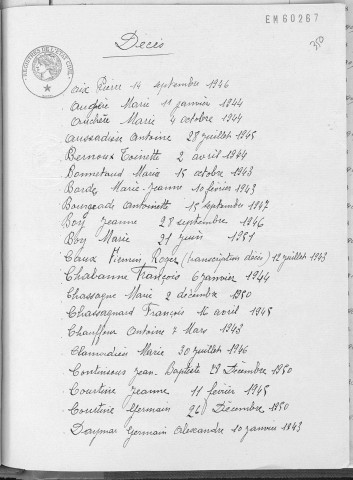 EM60267
Decès
310
Aix Pierre 14 septembre 1946
Marie 11 janvier 1944
Marie 4 octobre 1944
Aussadier Antoine 28 juillet 1945
Bernoux Toinette 2 avril 1944
Bonnetaud Maria 15 octobre 1943
Borde Marie-Jeanne 10 février 1943
Antoinette 15 septembre 1947
Boy Jeanne 28 septembre 1946
Boy Marie 21 juin 1951
Caux Firmin, Roger (transcription décès) 12 juillet 1943
Chabanne François 6 janvier 1944
Chassagne Marie 2 décembre 1950
Chassagnard François 16 avril 1945
Chauffour Antoine 7 Mars 1943
Marie 30 juillet 1946
Continsous Jean Baptiste Décembre 1950
Courtine Jeanne 11 février 1945
Courtine Germain 26 Décembre 1950
Daymar Germain Alexandre 10 janvier 1943